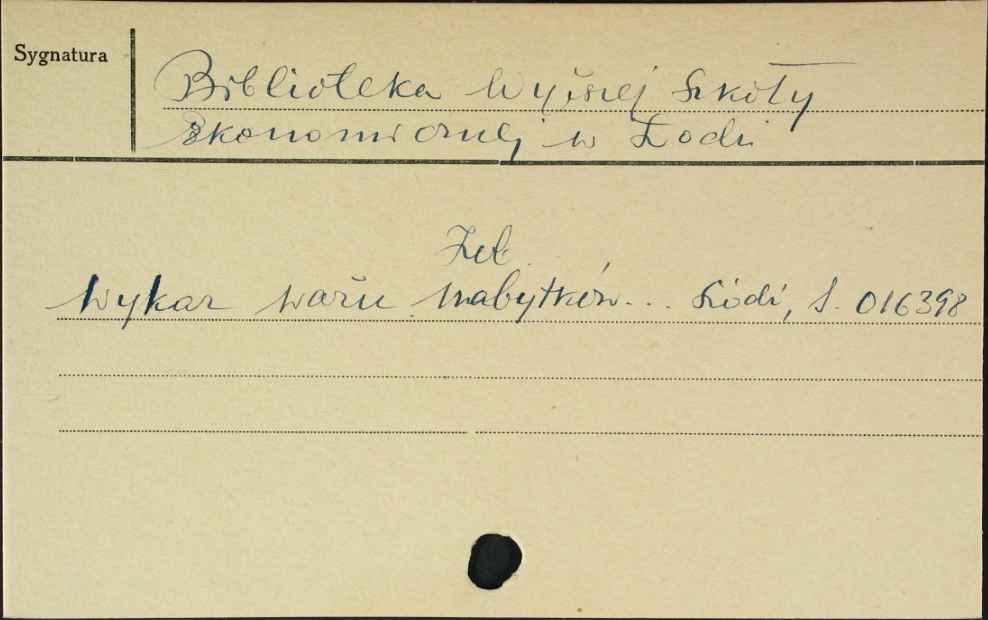 Sygnatura
Biblioteka Wyższej Szkoły
Ekonomicznej w Łodzi
Zel
Wykaz ważn. nabytków... Łódź, S. 016398